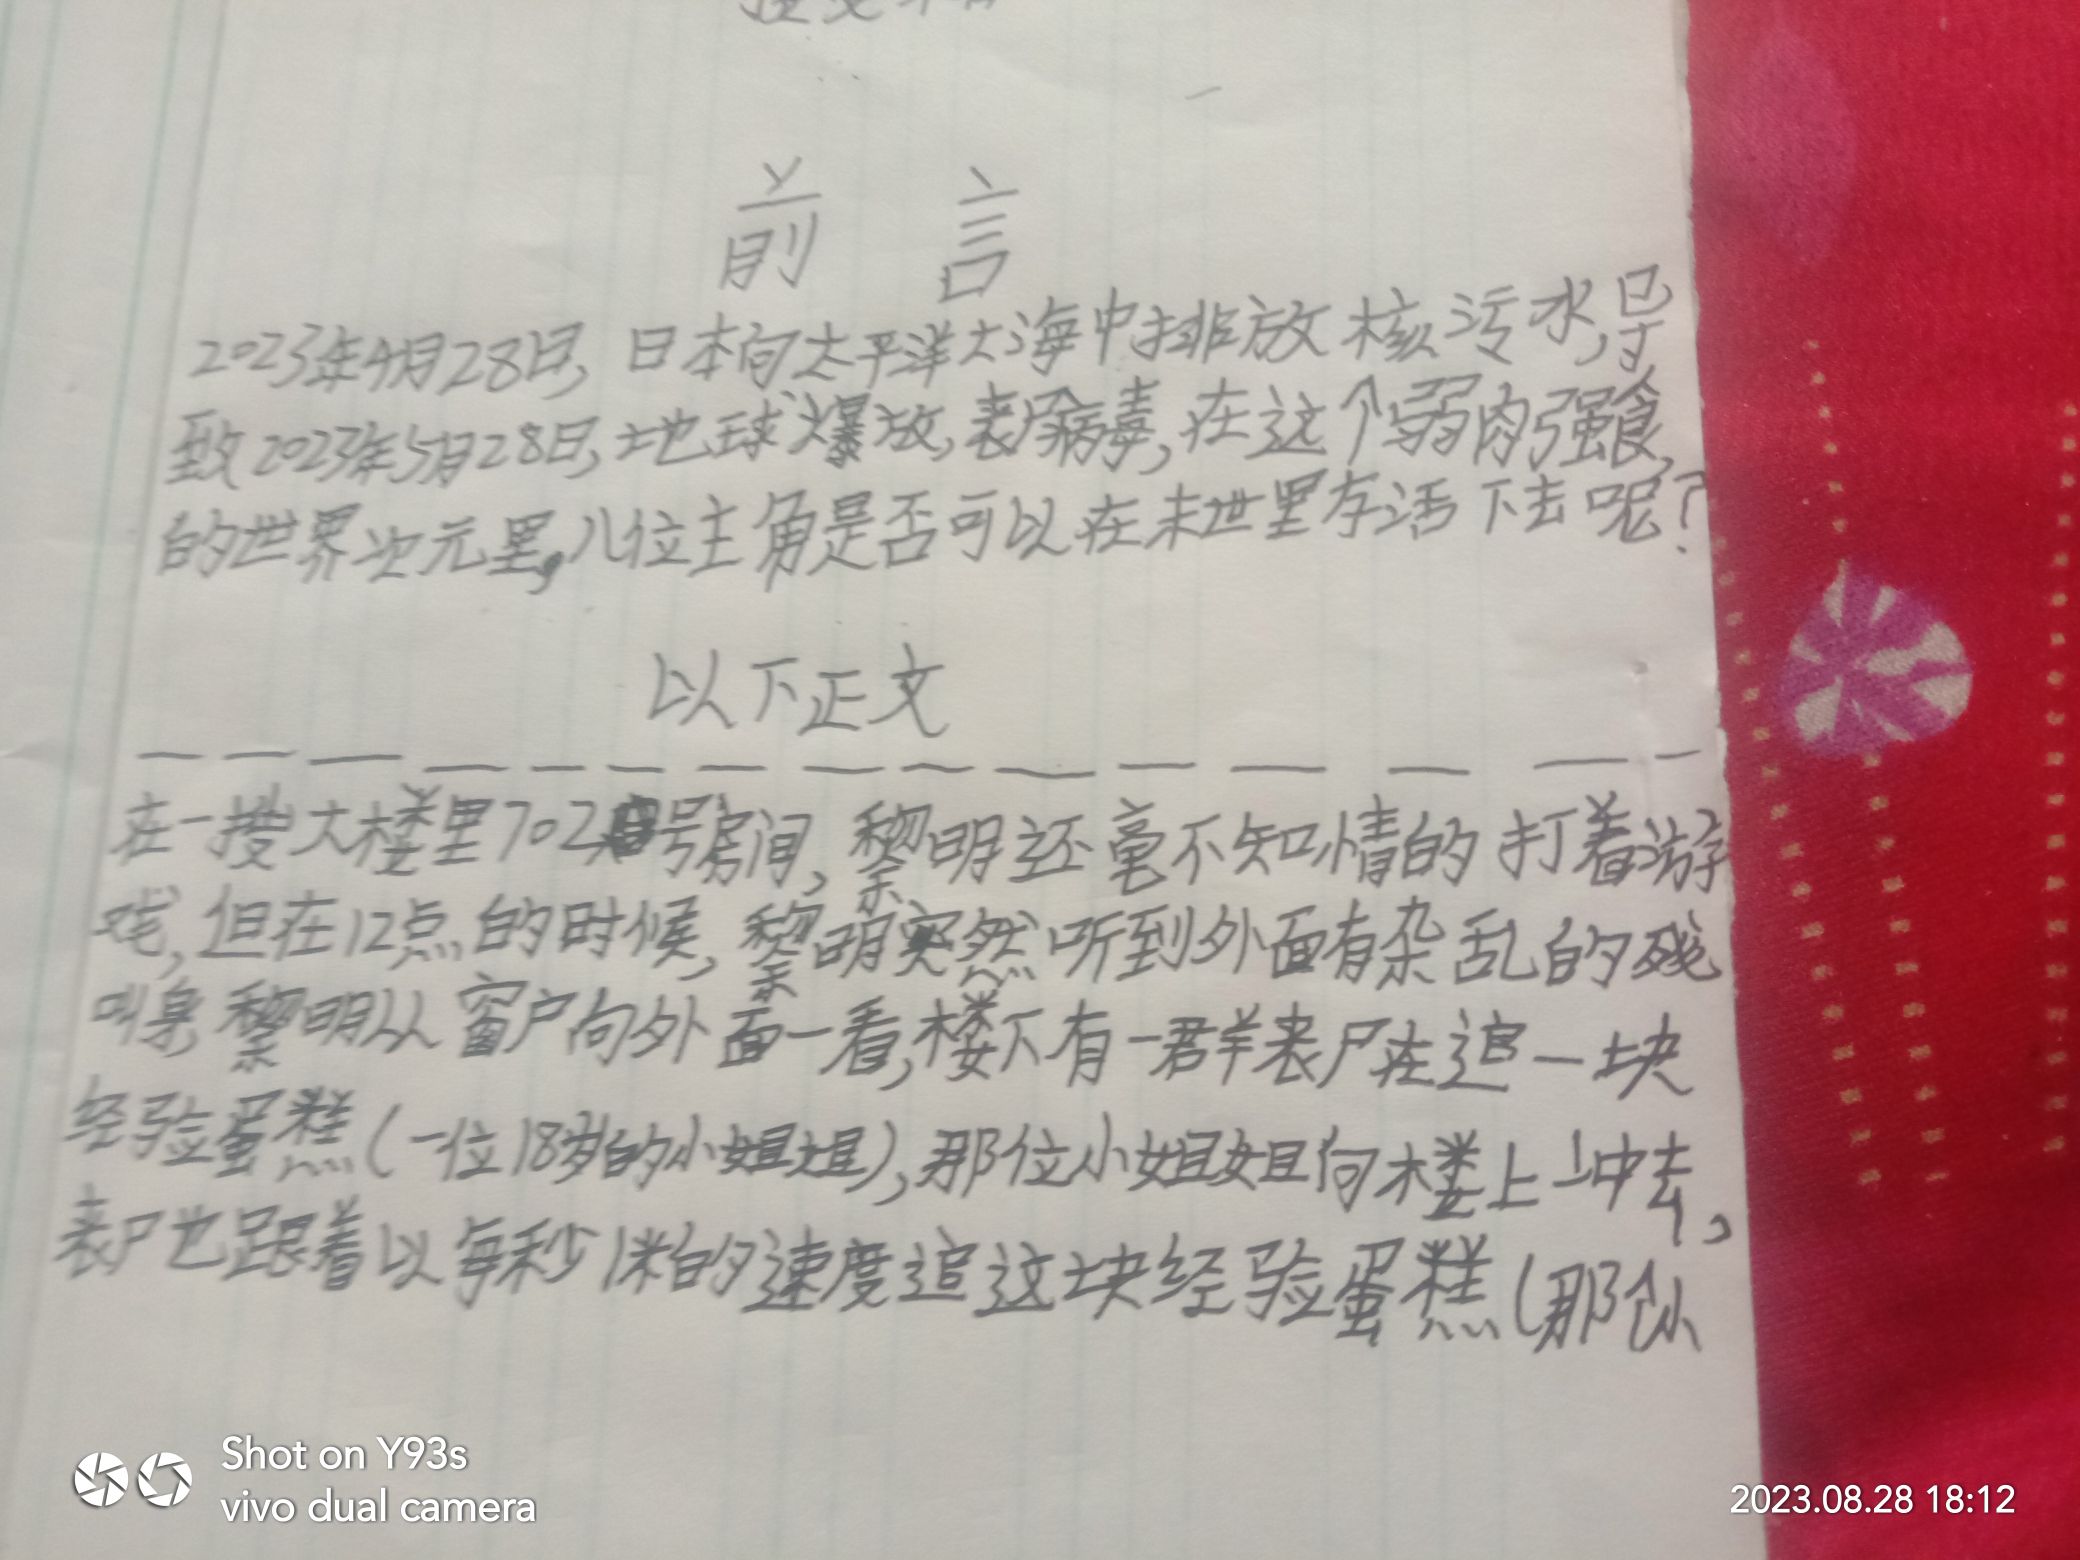 前 言
2023年4月28日, 日本向太平洋大海中排放核污水,导
致2023年5月28日,地球爆放,丧尸病毒,在这个弱肉强食,
的世界次元里,几位主角是否可以在末世里存活下去呢?
以下正文
在一搜大楼里702号房间,黎明还毫不知情的打着游
戏,但在12点的时候,黎明突然听到外面有杂乱的残
叫臭,黎明从窗户向外面一看,楼下有一群丧尸在追一块
经验蛋糕(一位18岁的小姐姐),那位小姐姐向楼上冲去,
丧尸也跟着以每秒1米的速度追这块经验蛋糕(那个小
Shot on Y93s
vivo dual camera
2023.08.28 18:12